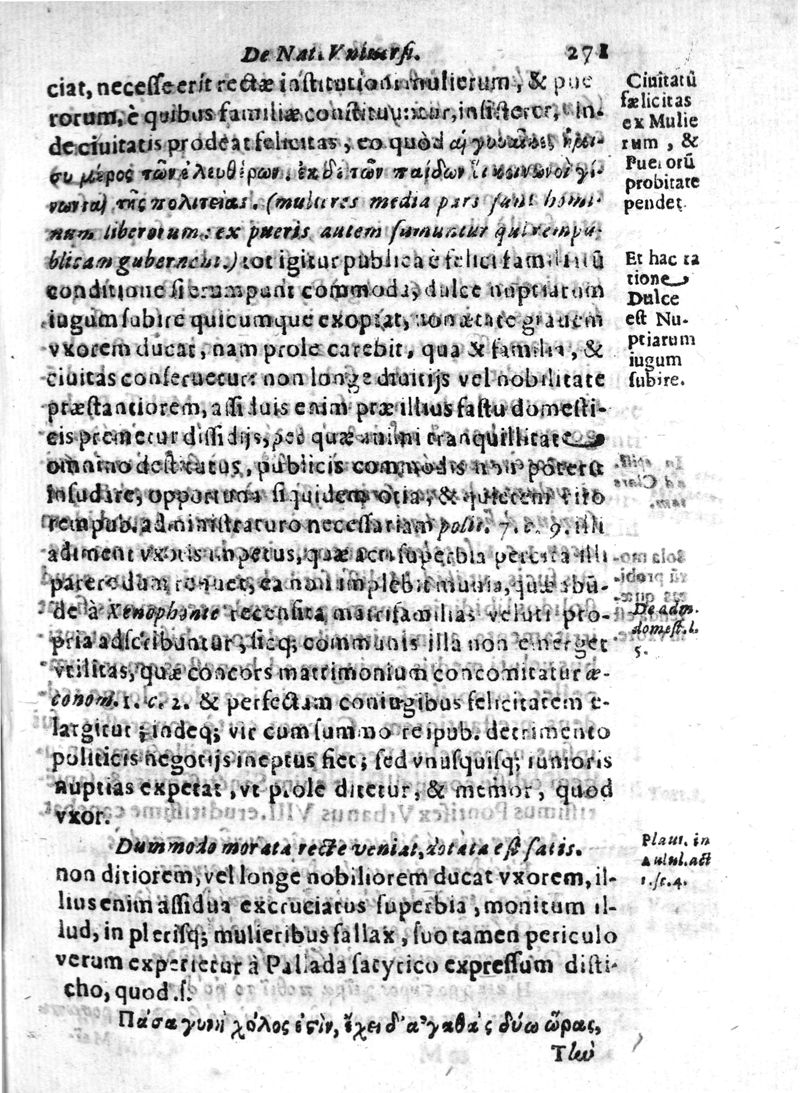 De Nat. Vniuersi. 271
ciat, necesse erit rectæ institutioni mulierum, & pue
rorum, è quibus familiæ constituuntur, insisteret, in-
de ciuitatis prodeat felicitas, eo quòd αἱ γυναῖκες ἥμι-
συ μέρος τῶν ἐλευθέρων. ἐκ δὲ τῶν παίδων οἱ κοινωνοὶ γί-
νονται τῆς πολιτείας. (mulieres media pars sunt homi-
num liberorum: ex pueris autem sumuntur qui rempu-
blicam gubernent.) tot igitur publica è felici familiarū
conditione si erumpant commoda, dulce nuptiarum
iugum subire quicumque exoptat, non ætate grauem
vxorem ducat, nam prole carebit, qua & familia, &
ciuitas conseruetur: non longe diuitijs vel nobilitate
præstantiorem, assiduis enim præ illius fastu domesti-
cis premetur dissidijs, sed quæ animi tranquillitate
omnino destitutus, publicis commodis non poterit
insudare, opportuna siquidem otia, & quietem viro
rempub. administraturo necessariam polit. 7. c. 9. illi
adiment vxoris impetus, quæ acri superbia percita illi
parere dum renuet, ea non implebit munia, quæ abū-
de à Xenophonte recensita matrifamilias veluti pro-
pria adscribuntur, sicq; communis illa non emerget
vtilitas, quæ concors matrimonium concomitatur æ-
conom. 1. c. 2. & perfectam coniugibus felicitatem e-
largitur; indeq; vir cum summo reipub. detrimento
politicis negotijs ineptus fiet; sed vnusquisq; iunioris
nuptias expetat, vt prole ditetur, & memor, quod
vxor.
Dummodo morata recte veniat, dotata est satis.
non ditiorem, vel longe nobiliorem ducat vxorem, il-
lius enim assidua excruciatus superbia, monitum il-
lud, in plerisq; mulieribus fallax, suo tamen periculo
verum experietur à Pallada satyrico expressum disti-
cho, quod .s.
Πᾶσα γυνὴ χόλος ἐστίν, ἔχει δ' ἀγαθὰς δύω ὥρας,
Τὴν
Ciuitatū
fælicitas
ex Mulie
rum, &
Puerorū
probitate
pendet.
Et hac ra
tione
Dulce
est Nu-
ptiarum
iugum
subire.
De adm.
domest. l.
5.
Plaut. in
Aulul. act
1. sc. 4.